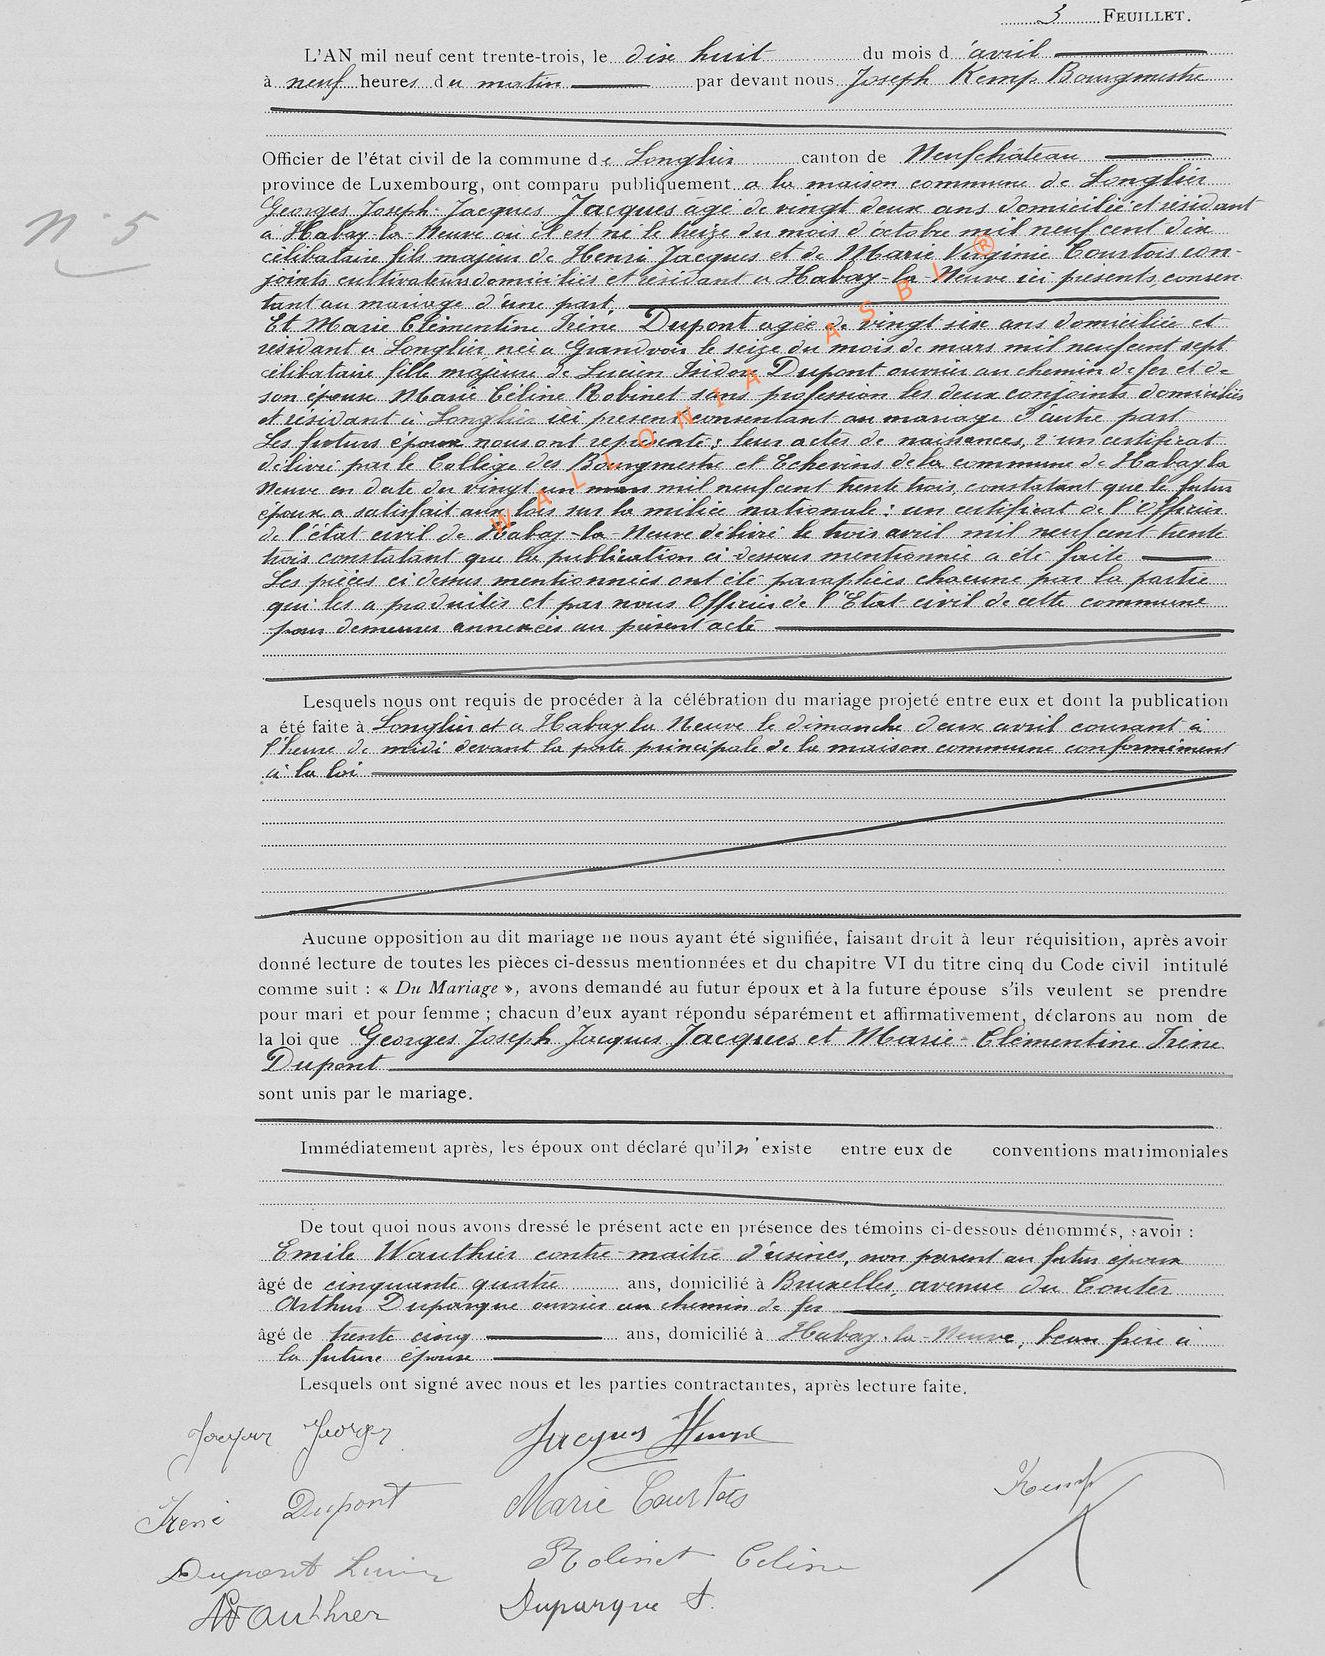 3 FEUILLET.
L'AN mil neuf cent trente-trois, le dix huit du mois d'avril
à neuf heures du matin par devant nous Joseph Kemp Bourgmestre
Officier de l'état civil de la commune de Longlier canton de Neufchâteau
province de Luxembourg, ont comparu publiquement a la maison commune de Longlier
Georges Joseph Jacques Jacques âgé de vingt deux ans domicilié et résidant
N° 5
a Habay-la-Neuve où il est né le treize du mois d'octobre mil neuf cent dix
célibataire fils majeur de Henri Jacques et de Marie Virginie Courtois con-
joints cultivateurs domiciliés et résidant a Habay-la-Neuve ici présents consen
tant au mariage d'une part,
Et Marie Clémentine Irène Dupont agée de vingt six ans domiciliée et
résidant a Longlier née a Grandvoir le seize du mois de mars mil neuf cent sept
célibataire fille majeure de Lucien Isidore Dupont ouvrier au chemin de fer et de
son épouse Marie Céline Robinet sans profession les deux conjoints domiciliés
et résidant à Longlier ici présents consentant au mariage d'autre part
Les futurs époux nous ont représenté : leurs actes de naissances, 2° un certificat
délivré par le Collège des Bourgmestre et Echevins de la commune de Habay la
Neuve en date du vingt un mars mil neuf cent trente trois, constatant que le futur
époux a satisfait aux lois sur la milice nationale ; un certificat de l'Officier
de l'état civil de Habay-la-Neuve délivré le trois avril mil neuf cent trente
trois constatant que la publication ci dessous mentionnée a été faite
Les pièces ci dessus mentionnées ont été paraphées chacune par la partie
qui les a produites et par nous Officier de l'Etat civil de cette commune
pour demeurer annexées au présent acte
WALLONIA ASBL ®
Lesquels nous ont requis de procéder à la célébration du mariage projeté entre eux et dont la publication
a été faite à Longlier et a Habay la Neuve le dimanche deux avril courant à
l'heure de midi devant la porte principale de la maison commune conformément
à la loi
Aucune opposition au dit mariage ne nous ayant été signifiée, faisant droit à leur réquisition, après avoir
donné lecture de toutes les pièces ci-dessus mentionnées et du chapitre VI du titre cinq du Code civil intitulé
comme suit : « Du Mariage », avons demandé au futur époux et à la future épouse s'ils veulent se prendre
pour mari et pour femme ; chacun d'eux ayant répondu séparément et affirmativement, déclarons au nom de
la loi que Georges Joseph Jacques Jacques et Marie-Clémentine Irène
Dupont
sont unis par le mariage.
Immédiatement après, les époux ont déclaré qu'il n'existe entre eux de conventions matrimoniales
De tout quoi nous avons dressé le présent acte en présence des témoins ci-dessous dénommés, savoir :
Emile Wauthier contre-maitre d'usines, non parent au futur époux
âgé de cinquante quatre ans, domicilié à Bruxelles, avenue du Couter
Arthur Duparque ouvrier au chemin de fer
âgé de trente cinq ans, domicilié à Habay-la-Neuve, beau frère à
la future épouse
Lesquels ont signé avec nous et les parties contractantes, après lecture faite.
Jacques Georges Jacques Henri
Kemp
Irène Dupont Marie Courtois
Dupont Lucien Robinet Celine
Wauthier Duparque A.